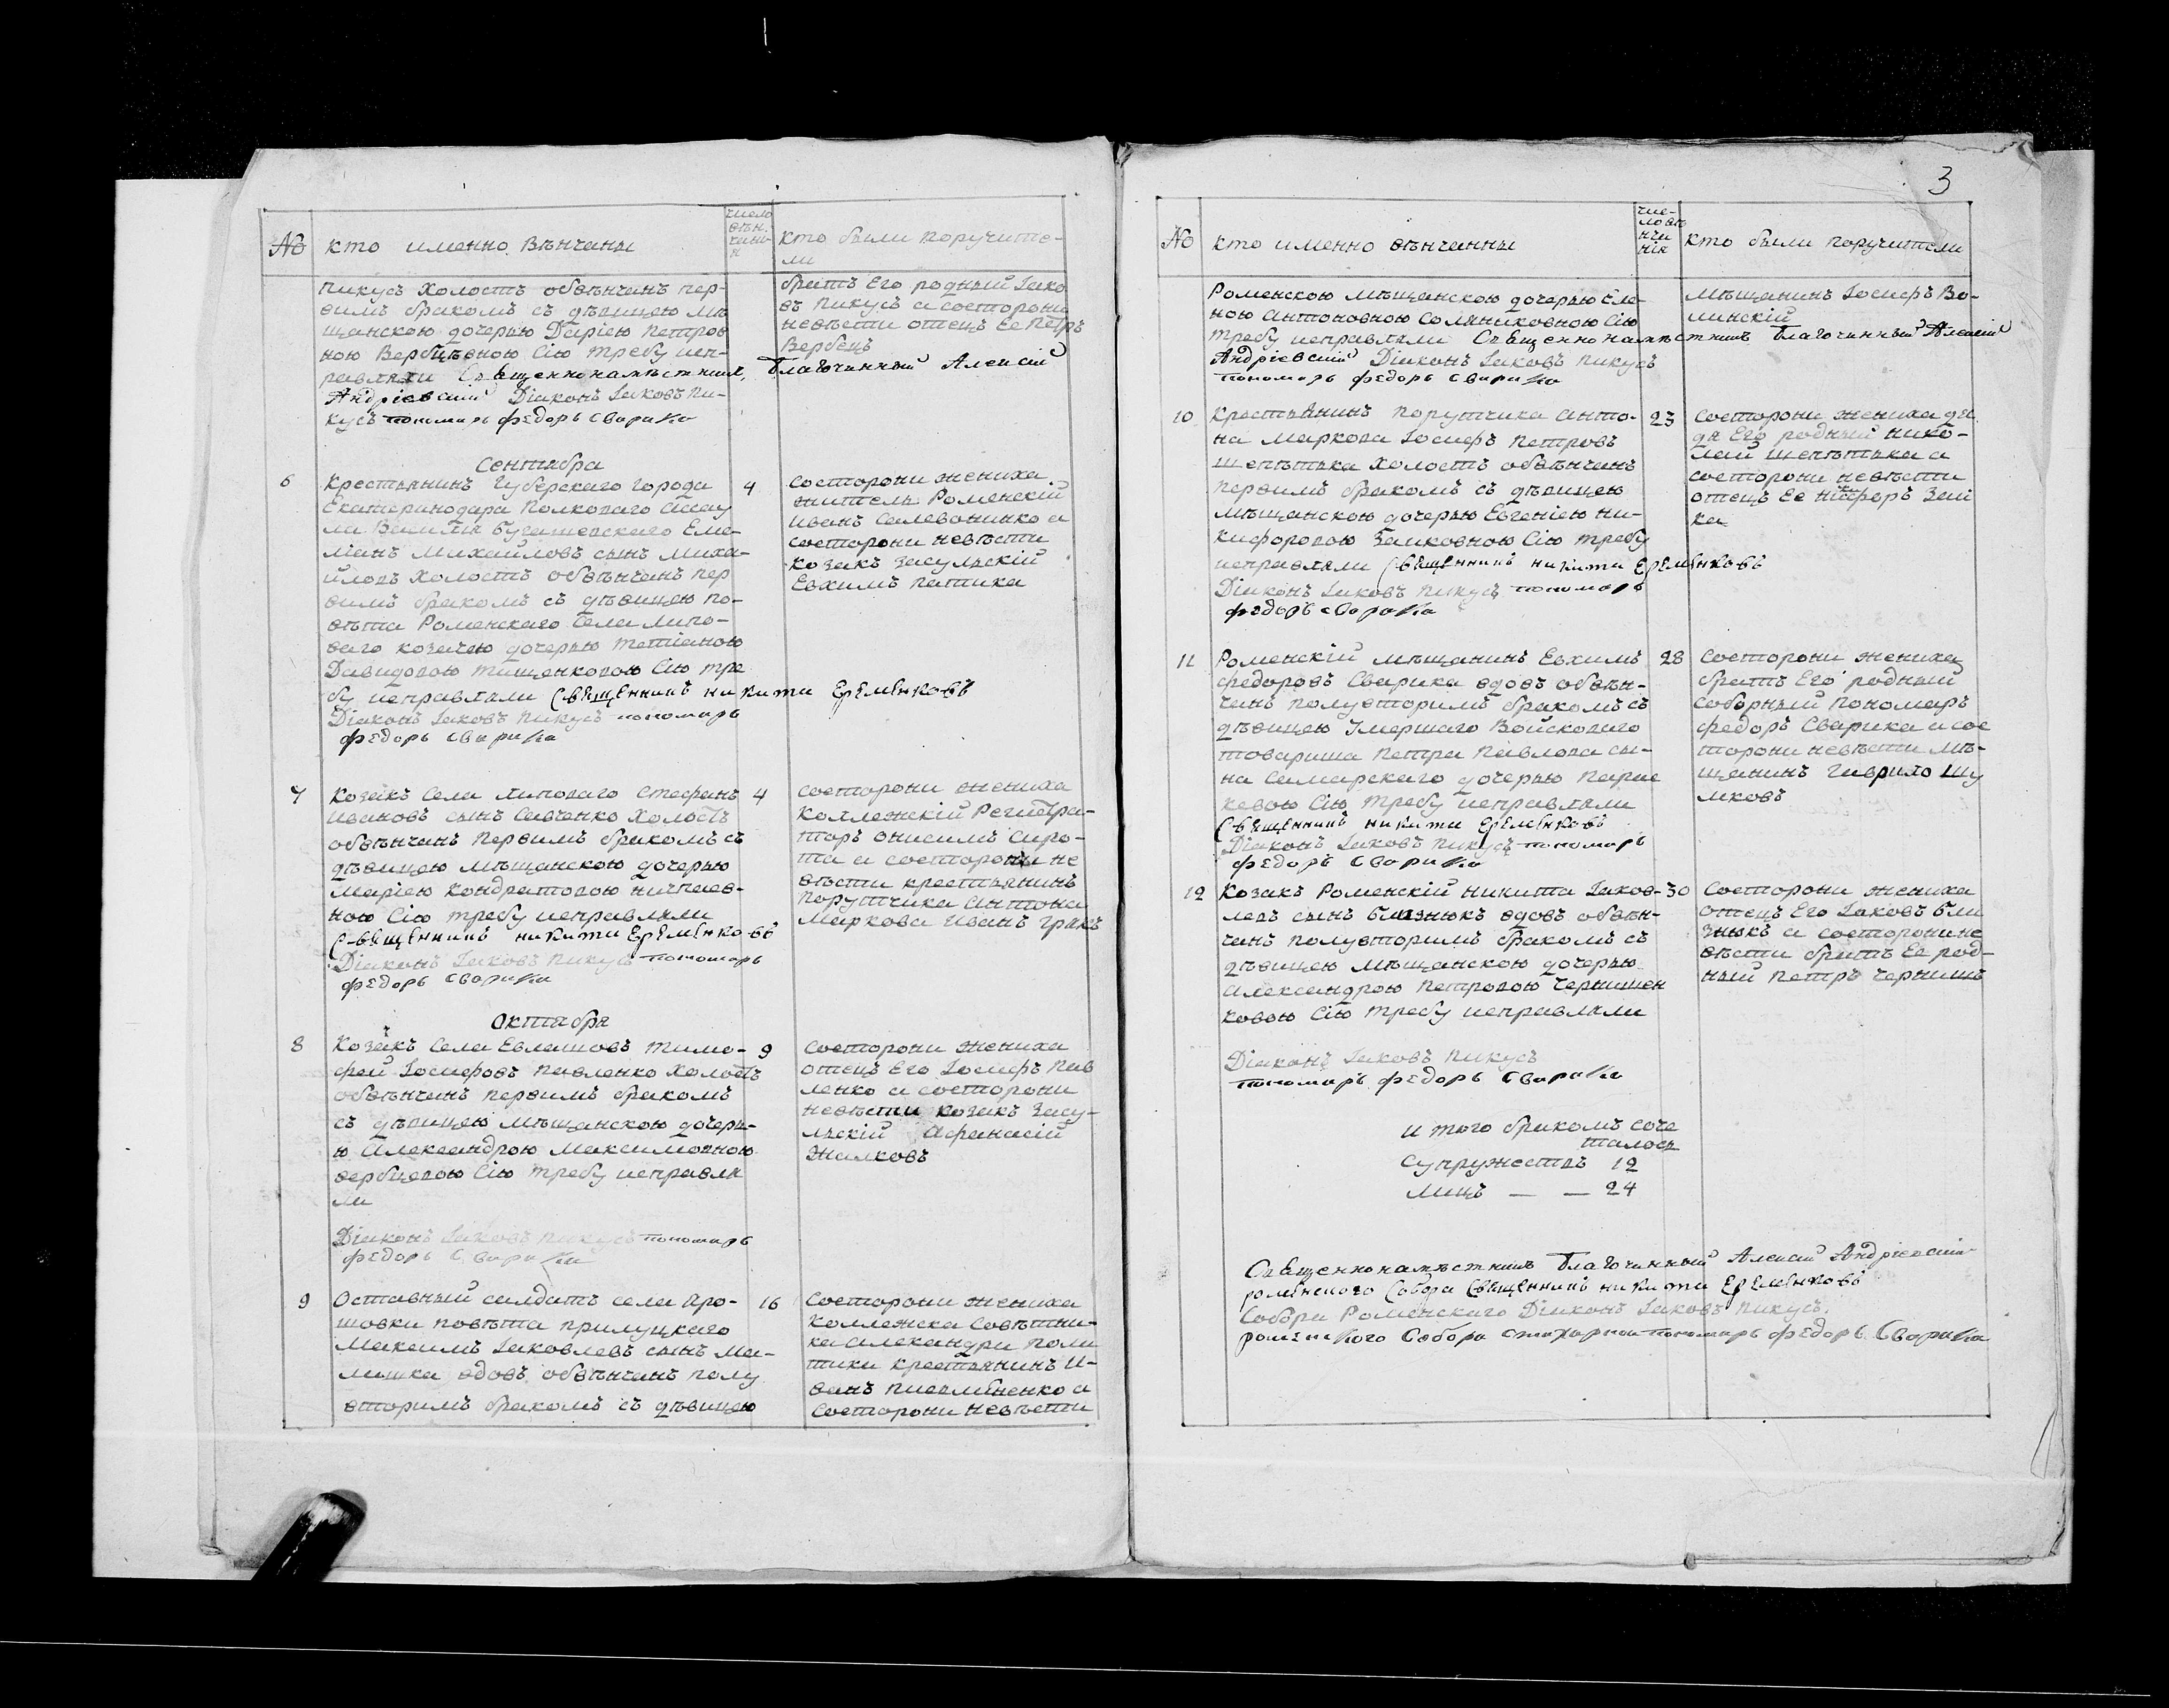 № кто именно Вѣнчаны
число
вѣн-
чани-
я
кто были поручите-
ли
пикусъ Холостъ обвѣнчанъ пер-
вимъ бракомъ съ дѣвицею мѣ
щанскою дочерью Даріею петров
ною Вербцѣвною Сію требу исп-
равляли Священнонамѣстникъ, Благочинный Алексій
Андріевскій Діаконъ Іаковъ Пи-
кусъ пономарь федоръ сварика
братъ Его родный Іако
въ пикусъ а состорони
невѣсти отецъ Ее петръ
Вербецъ
Сентября
6 Крестьянинъ Губерскаго города
Екатеринодара Полковаго Асау
ла Василія Еме-
ліанъ Михайловъ сынъ Миха-
йловъ Холостъ обвѣнчанъ пер
вимъ бракомъ съ дѣвицею по-
вѣта Роменскаго Села Липо-
ваго козачею дочерью Татіаною
Давидовою тищенковою Сію тре
бу исправляли Священникъ никита Еременковъ
Діаконъ Іаковъ пикусъ пономарь
федоръ сварика
4 состорони жениха
житель Роменскій
иванъ Селевонинко а
состорони невѣсти
козакъ засульскій
Евхимъ патика
7 козакъ Села липоваго Стефанъ
ивановъ сынъ Савченко Холостъ
обвѣнчанъ первимъ бракомъ съ
дѣвицею мѣщанскою дочерью
Маріею кондратовою ничпаев-
ною Сію требу исправляли
Священникъ никита Еременковъ
Діаконъ Іаковъ пикусъ пономарь
федоръ сварика
4 состорони жениха
Коллежскій Регистра-
торъ Онисимъ Сиро-
та а состорони не
вѣсти крестьянинъ
порутчика Антона
Маркова Иванъ Гракъ
Октября
8 Козакъ Села Евлашовъ тимо-
фей Іосифовъ павленко холостъ
обвѣнчанъ первимъ бракомъ
съ дѣвицею мѣщанскою дочерь-
ю Александрою Максимовною
вербцевою Сію требу исправля
ли
Діаконъ Іаковъ пикусъ пономарь
федоръ Сварика
9 состорони жениха
отецъ Его Іосифъ пав
ленко а состорони
невѣсти козакъ засу-
льскій Афанасій
Жалковъ
9 Оставный салдатъ села яро-
шовки повѣта прилуцкаго
Максимъ Іаковлевъ сынъ Ма-
лишка вдовъ обвѣнчанъ полу
вторимъ бракомъ съ дѣвицею
16 состорони жениха
коллежска Совѣтни-
ка Александри поли
тики крестьянинъ И-
ванъ а
состорони невѣсти
3
№ кто именно вѣнчанны
чис-
ло вѣ
нча
нія
кто были поручители
Роменскою мѣщанскою дочерью Еле-
ною Антоновною Соляниковною Сію
требу исправляли Священнонамѣстникъ Благочинный Алексій
Андріевскій Діаконъ Іаковъ пикусъ
пономарь федоръ сварика
мѣщанинъ Іосифъ Во-
линскій
10 Крестьянинъ порутчика анто-
на Маркова Іосифъ петровъ
шепѣтька холостъ обвѣнчанъ
первимъ бракомъ съ дѣвицею
мѣщанскою дочерью Евгеніею ни-
кифоровою Заиковною Сію требу
исправляли Священникъ никита Еременковъ
Діаконъ Іаковъ пикусъ пономарь
федоръ сварика
23 Состорони жениха дя
дя Его родный нико-
лай шепѣтька а
состорони невѣсти
отецъ Ее Никифоръ Заи
ка
11 Роменскій мѣщанинъ Евхимъ
федоровъ Сварика вдовъ обвѣн-
чанъ полувторимъ бракомъ съ
дѣвицею Умершаго Войсковаго
товариша петра павлова сы-
на Самарскаго дочерью парас
кевою Сію требу исправляли
Священникъ никита Еременковъ
Діаконъ Іаковъ пикусъ пономарь
федоръ сварика
28 Состорони жениха
братъ Его родный
Соборный пономаръ
федоръ Сварика а сос
торони невѣсти мѣ-
щанинъ Гаврило Шу
лковъ
12 Козакъ Роменскій никита Іаков-
левъ сынъ близнюкъ вдовъ обвѣн-
чанъ полувторимъ бракомъ съ
дѣвицею мѣщанскою дочерью
Александрою петровою чернишен
ковою Сію требу исправляли
Діаконъ Іаковъ пикусъ
пономарь федоръ сварика
30 Состорони жениха
отецъ Его Іаковъ бли
знюкъ а состорони не
вѣсти братъ Ее род-
ный петръ чернишъ
и того бракомъ соче
талось
Супружествъ 12
лицъ — — 24
Священнонамѣстникъ Благочинный Алексій Андріевскій
роменского Собора Священникъ никита Еременковъ
Собора Роменскаго Діаконъ Іаковъ пикусъ
роменского Собора стихарной пономарь федоръ Сварика